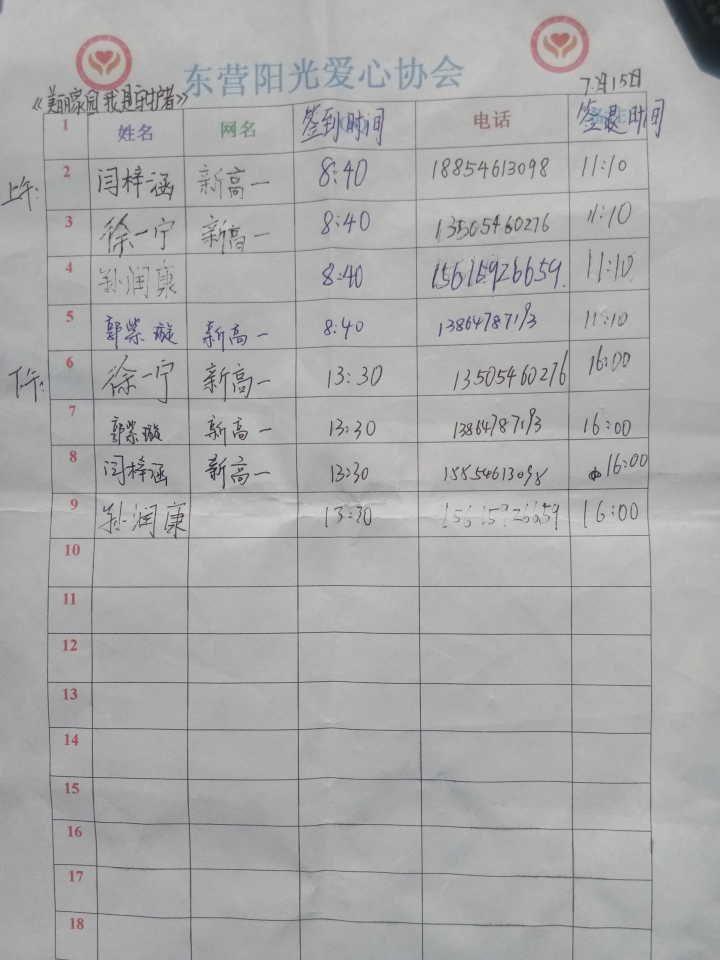 东营阳光爱心协会
7月15日
《美丽家园 我是守护者》
1 姓名 网名 签到时间 电话 签退时间
上午:
2 闫梓涵 新高一 8:40 18854613098 11:10
3 徐一宁 新高一 8:40 13505460276 11:10
4 孙润康 8:40 15615926659 11:10
5 郭紫璇 新高一 8:40 13864787193 11:10
下午:
6 徐一宁 新高一 13:30 13505460276 16:00
7 郭紫璇 新高一 13:30 13864787193 16:00
8 闫梓涵 新高一 13:30 15554613098 16:00
9 孙润康 13:30 15615926659 16:00
10
11
12
13
14
15
16
17
18